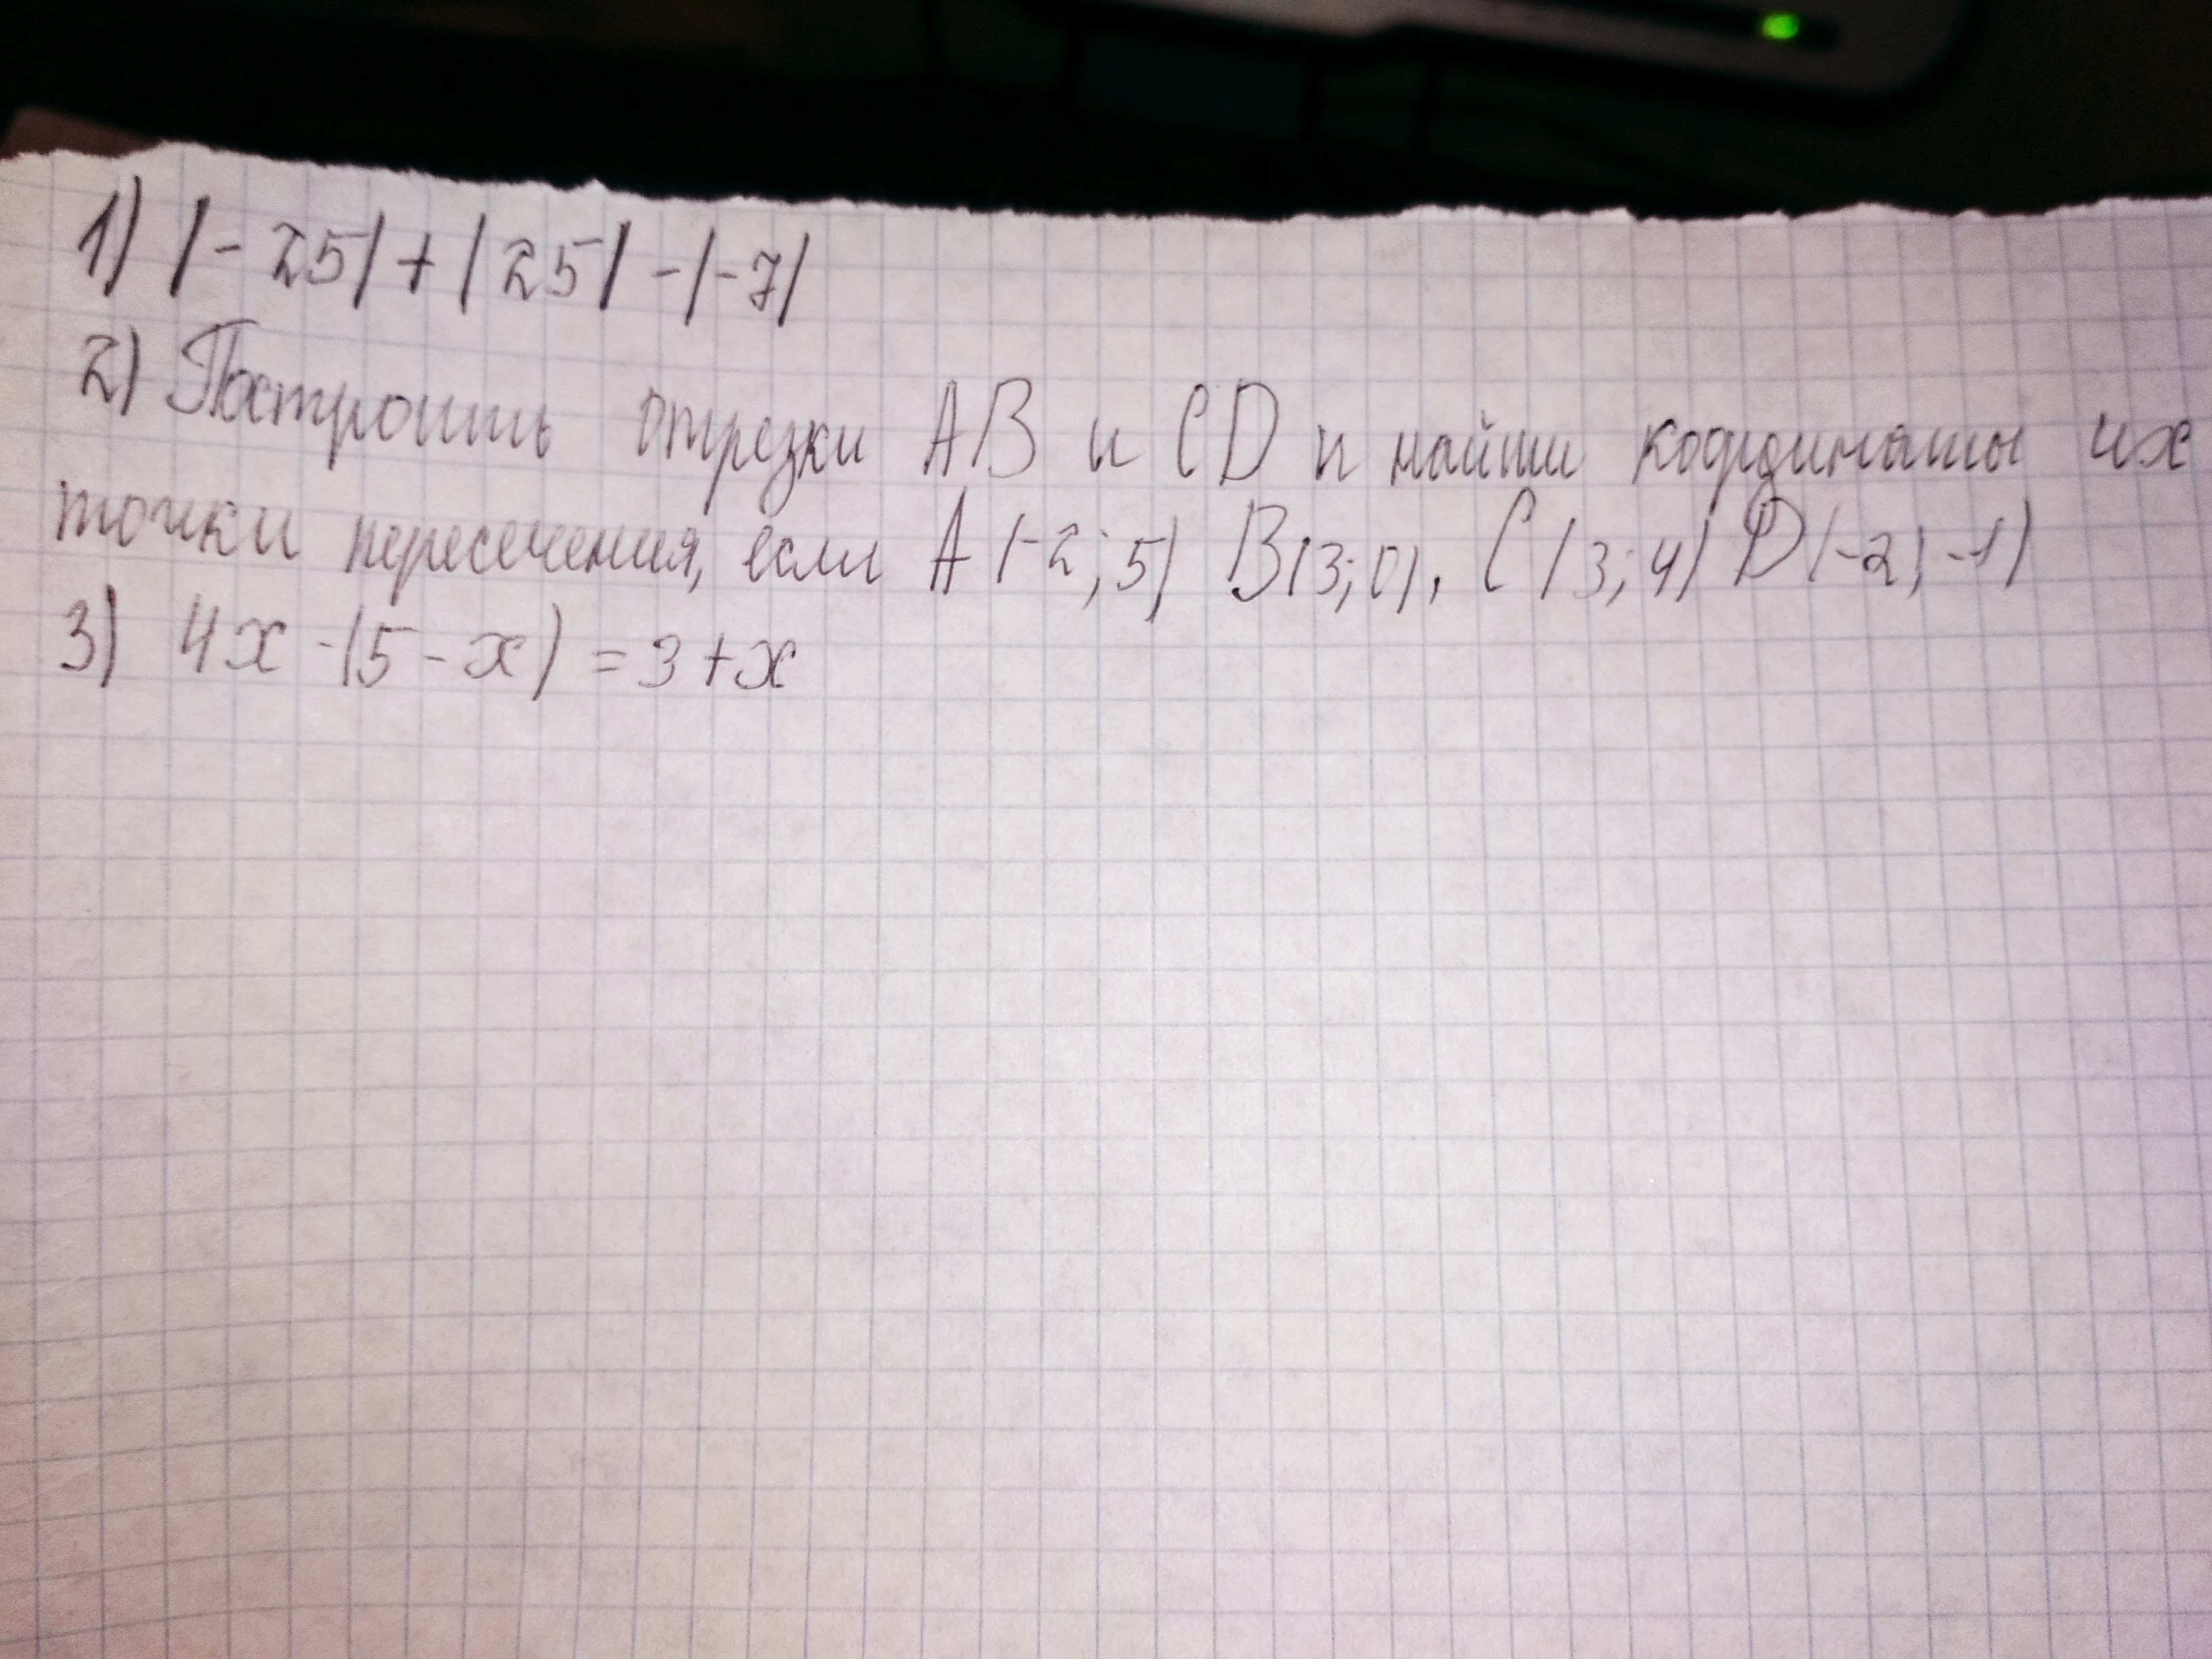 1) |-25|+|25|-|-7|
2) Построить отрезки AB и CD и найти координаты их
точки пересечения, если A(-2;5) B(3;0), C(3;4) D(-2;-1)
3) 4x-(5-x)=3+x